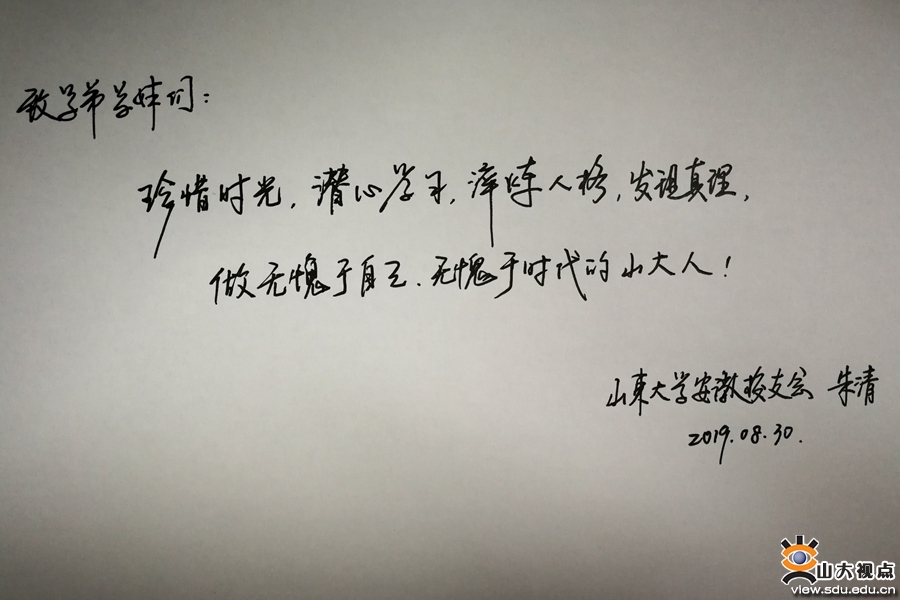 致学弟学妹们:
珍惜时光,潜心学习,淬炼人格,发现真理,
做无愧于自己、无愧于时代的山大人!
山东大学安徽校友会 朱清
2019.08.30.
山大视点
view.sdu.edu.cn